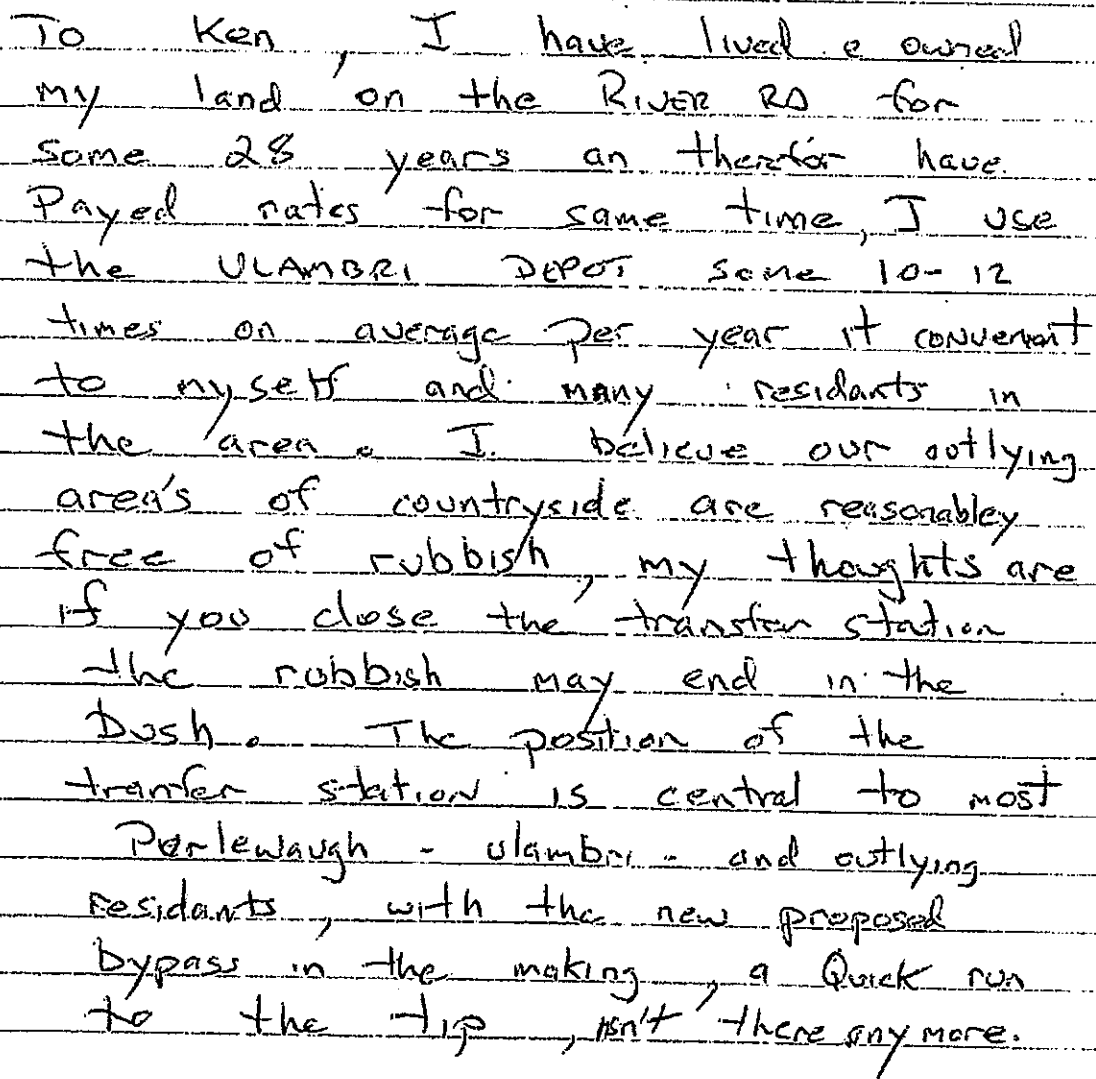 To Ken, I have lived e owned
my land on the RIVER RD for
some 28 years an therefor have
Payed rates for same time, I use
the ULAMBRI DEPOT some 10-12
times on average per year it convenient
to myself and many residants in
the area. I believe our outlying
area's of countryside are reasonabley
free of rubbish, my thoughts are
if you close the transfer station
the rubbish may end in the
bush. The position of the
tranfer station is central to most
Purlewaugh - ulambri - and outlying
residants, with the new proposed
bypass in the making, a Quick run
to the tip, isn't there any more.